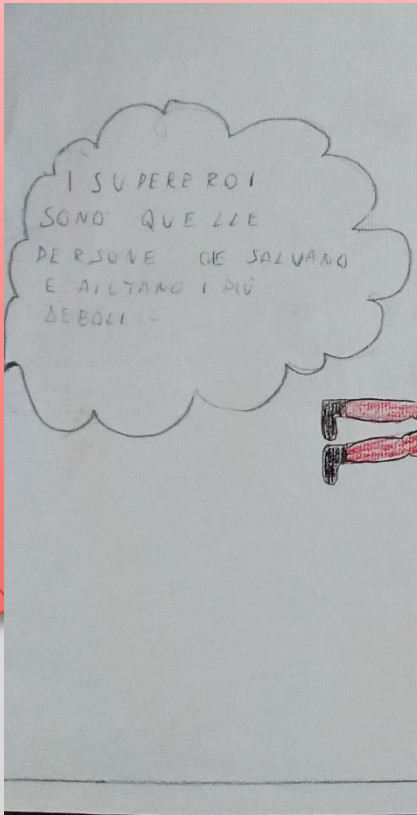 I SUPEREROI
SONO QUELLE
PERSONE CHE SALVANO
E AIUTANO I PIÙ
DEBOLI -